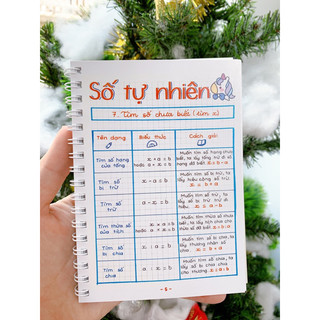 Số tự nhiên
7. Tìm số chưa biết (tìm x)
Tên dạng
Biểu thức
Cách giải
Tìm số hạng của tổng
x + a = b
hoặc a + x = b
Muốn tìm số hạng chưa biết, ta lấy tổng trừ đi số hạng đã biết x = b - a
Tìm số bị trừ
x - a = b
Muốn tìm số bị trừ, ta lấy hiệu cộng số trừ
x = b + a
Tìm số trừ
a - x = b
Muốn tìm số trừ, ta lấy số bị trừ trừ đi hiệu x = a - b
Tìm thừa số của tích
x × a = b
hoặc a × x = b
Muốn tìm thừa số chưa biết, ta lấy tích chia cho thừa số đã biết x = b : a
Tìm số bị chia
x : a = b
Muốn tìm số bị chia, ta lấy thương nhân số chia x = b × a
Tìm số chia
a : x = b
Muốn tìm số chia, ta lấy số bị chia chia cho thương x = a : b
- 6 -